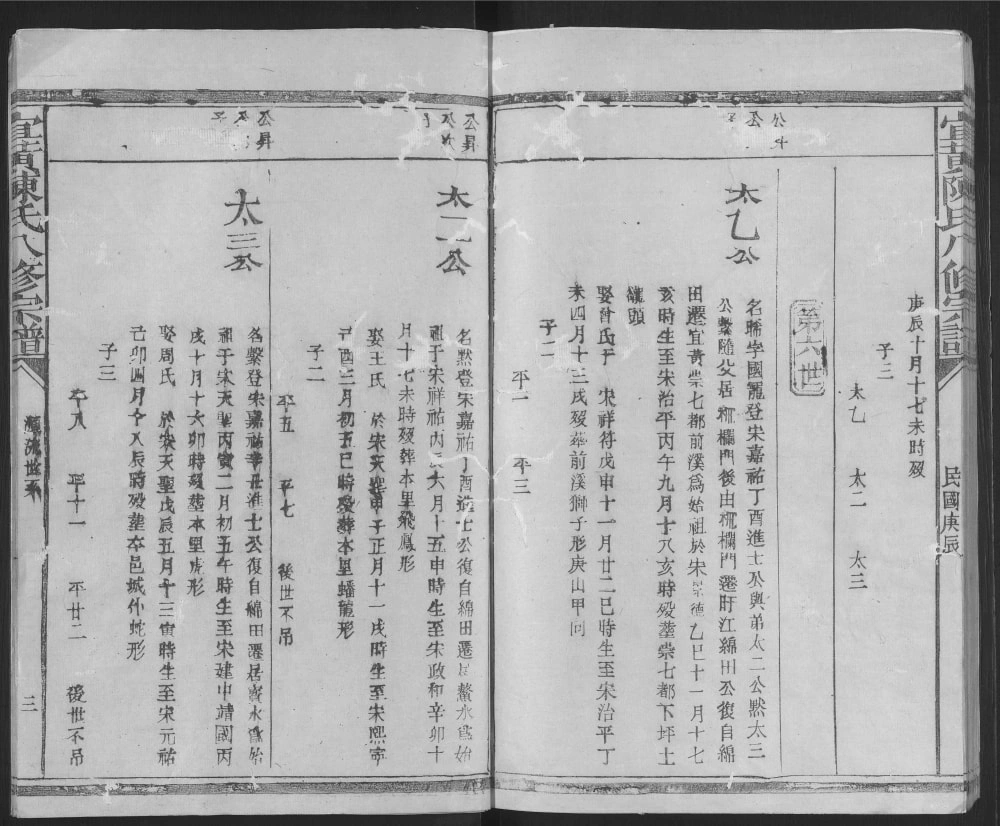 宜黃陳氏八修宗譜
民國庚辰
庚辰十月十七未時歿
子三
太乙 太二 太三
第六世
公
太乙公
名晞字國寵登宋嘉祐丁酉進士公與弟太二公黙太三
公繫隨父居柵欄門後由柵欄門遷盱江綿田公復自綿
田遷宜黃崇七都前溪爲始祖於宋景德乙巳十一月十七
亥時生至宋治平丙午九月十八亥時歿塟崇七都下坪土
嶺頭
娶曾氏于 宋祥符戊申十一月廿二巳時生至宋治平丁
未四月十三戌歿葬前溪獅子形庚山甲向
子二
平一 平三
公昇
太二公
名黙登宋嘉祐丁酉進士公復自綿田遷居鰲水爲始
祖于宋祥祐丙辰六月十五申時生至宋政和辛卯十
月十七未時歿葬本里飛鳳形
娶王氏 於宋天聖甲子正月十一戌時生至宋熙寧
己酉三月初五巳時歿葬本里蟠龍形
子二
平五 平七 後世不弔
公昇
太三公
名繫登宋嘉祐辛丑進士公復自綿田遷居賽水爲始
祖于宋天聖丙寅二月初五午時生至宋建中靖國丙
戌十月十六卯時歿塟本里虎形
娶周氏 於宋天聖戊辰五月十三寅時生至宋元祐
己卯四月十八辰時歿塟本邑城仆蛇形
子三
平八 平十一 平廿二 後世不弔
宜黃陳氏八修宗譜
世系
三